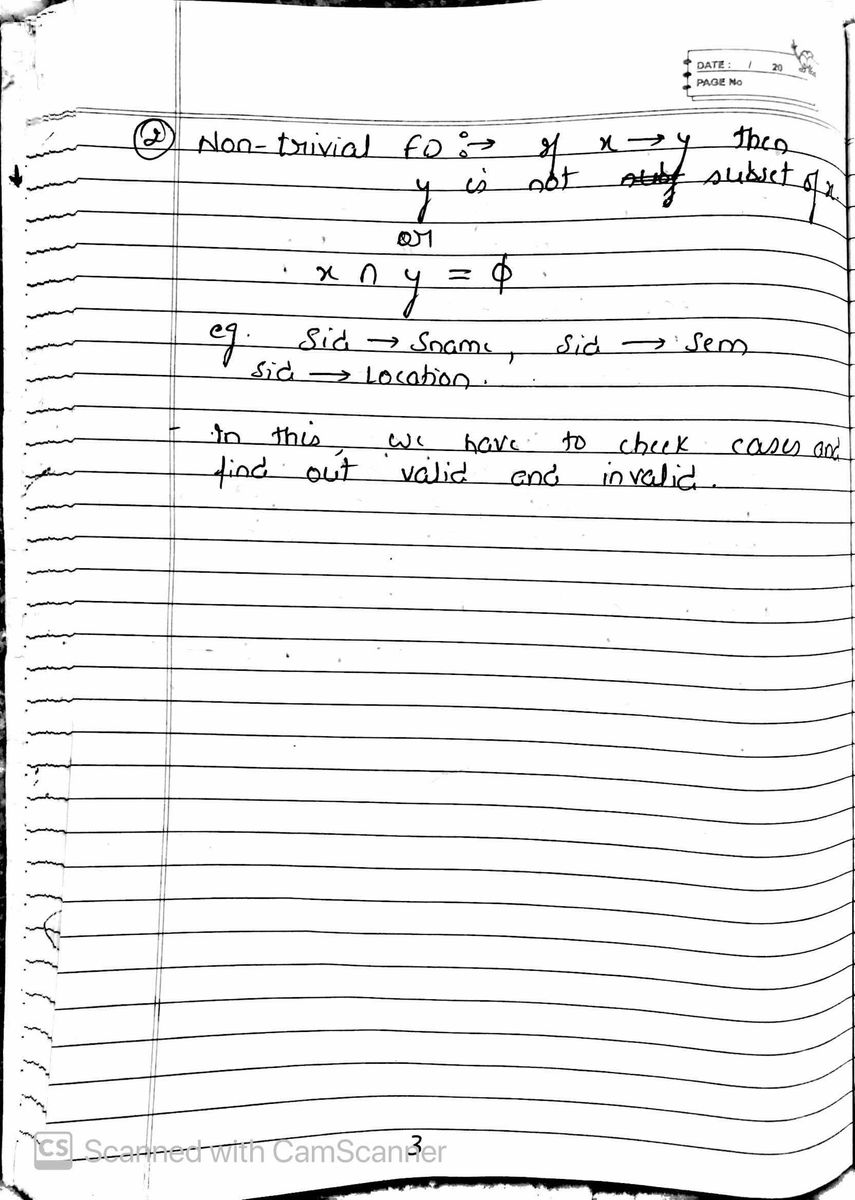 DATE: / 20
PAGE No
② Non-trivial FD :→ If x → y then
y is not subset of x
or
x ∩ y = ϕ
eg. Sid → Sname, Sid → Sem
Sid → Location.
- In this, we have to check cases and
find out valid and invalid.
3
CS Scanned with CamScanner